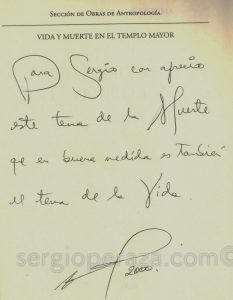 SECCIÓN DE OBRAS DE ANTROPOLOGÍA
VIDA Y MUERTE EN EL TEMPLO MAYOR
Para Sergio con aprecio
este tema de la Muerte
que en buena medida es también
el tema de la Vida.
2000.
sergioperaza.com©